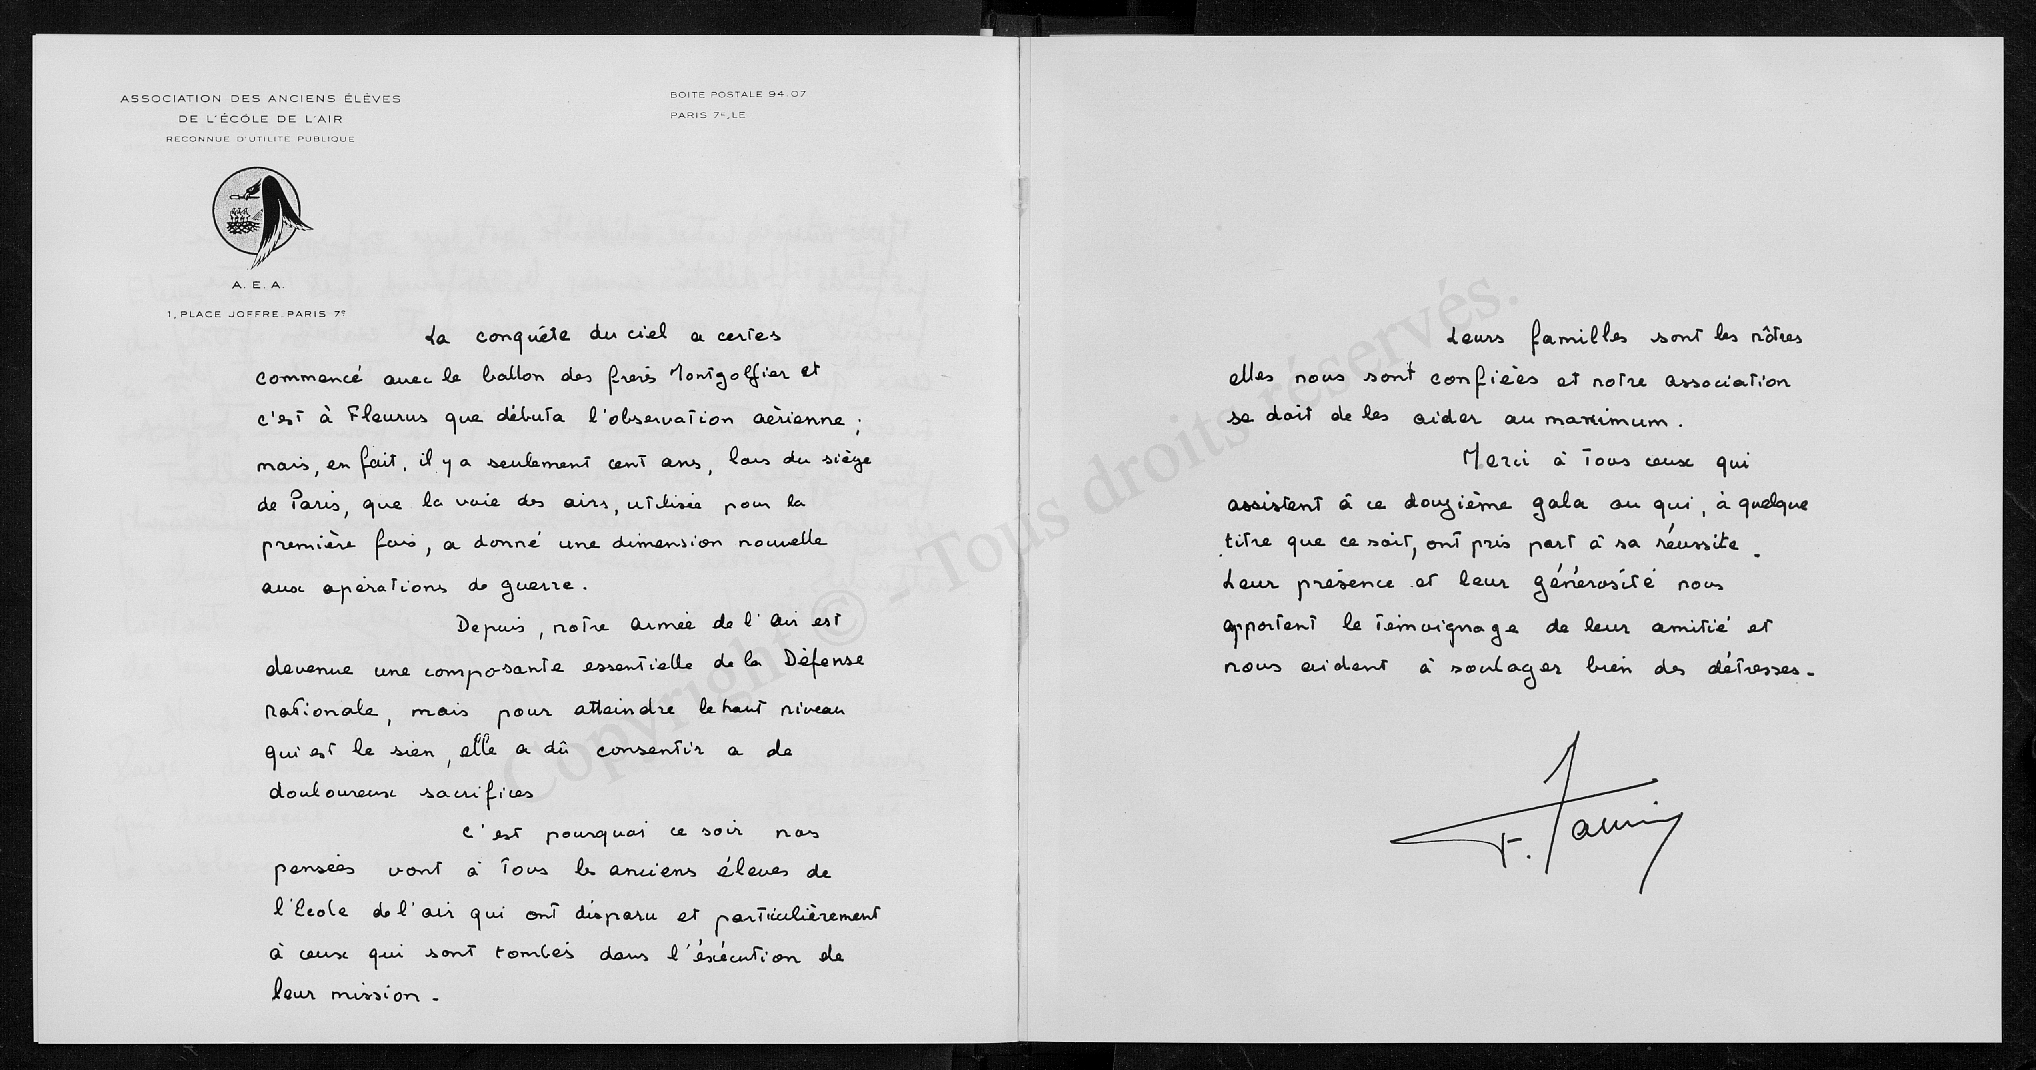 ASSOCIATION DES ANCIENS ÉLÈVES
DE L'ÉCOLE DE L'AIR
RECONNUE D'UTILITE PUBLIQUE
BOITE POSTALE 94.07
PARIS 7e, LE
A. E. A.
1, PLACE JOFFRE. PARIS 7e
La conquête du ciel a certes
commencé avec le ballon des frères Montgolfier et
c'est à Fleurus que débuta l'observation aérienne ;
mais, en fait, il y a seulement cent ans, lors du siège
de Paris, que la voie des airs, utilisée pour la
première fois, a donné une dimension nouvelle
aux opérations de guerre.
Depuis, notre armée de l'air est
devenue une composante essentielle de la Défense
nationale, mais pour atteindre le haut niveau
qui est le sien, elle a dû consentir a de
douloureux sacrifices
C'est pourquoi ce soir nos
pensées vont à tous les anciens élèves de
l'Ecole de l'air qui ont disparu et particulièrement
à ceux qui sont tombés dans l'éxécution de
leur mission.
Leurs familles sont les nôtres
elles nous sont confiées et notre association
se doit de les aider au maximum.
Merci à tous ceux qui
assistent à ce douzième gala ou qui, à quelque
titre que ce soit, ont pris part à sa réussite.
Leur présence et leur générosité nous
apportent le témoignage de leur amitié et
nous aident à soulager bien des détresses.
Copyright © - Tous droits réservés.